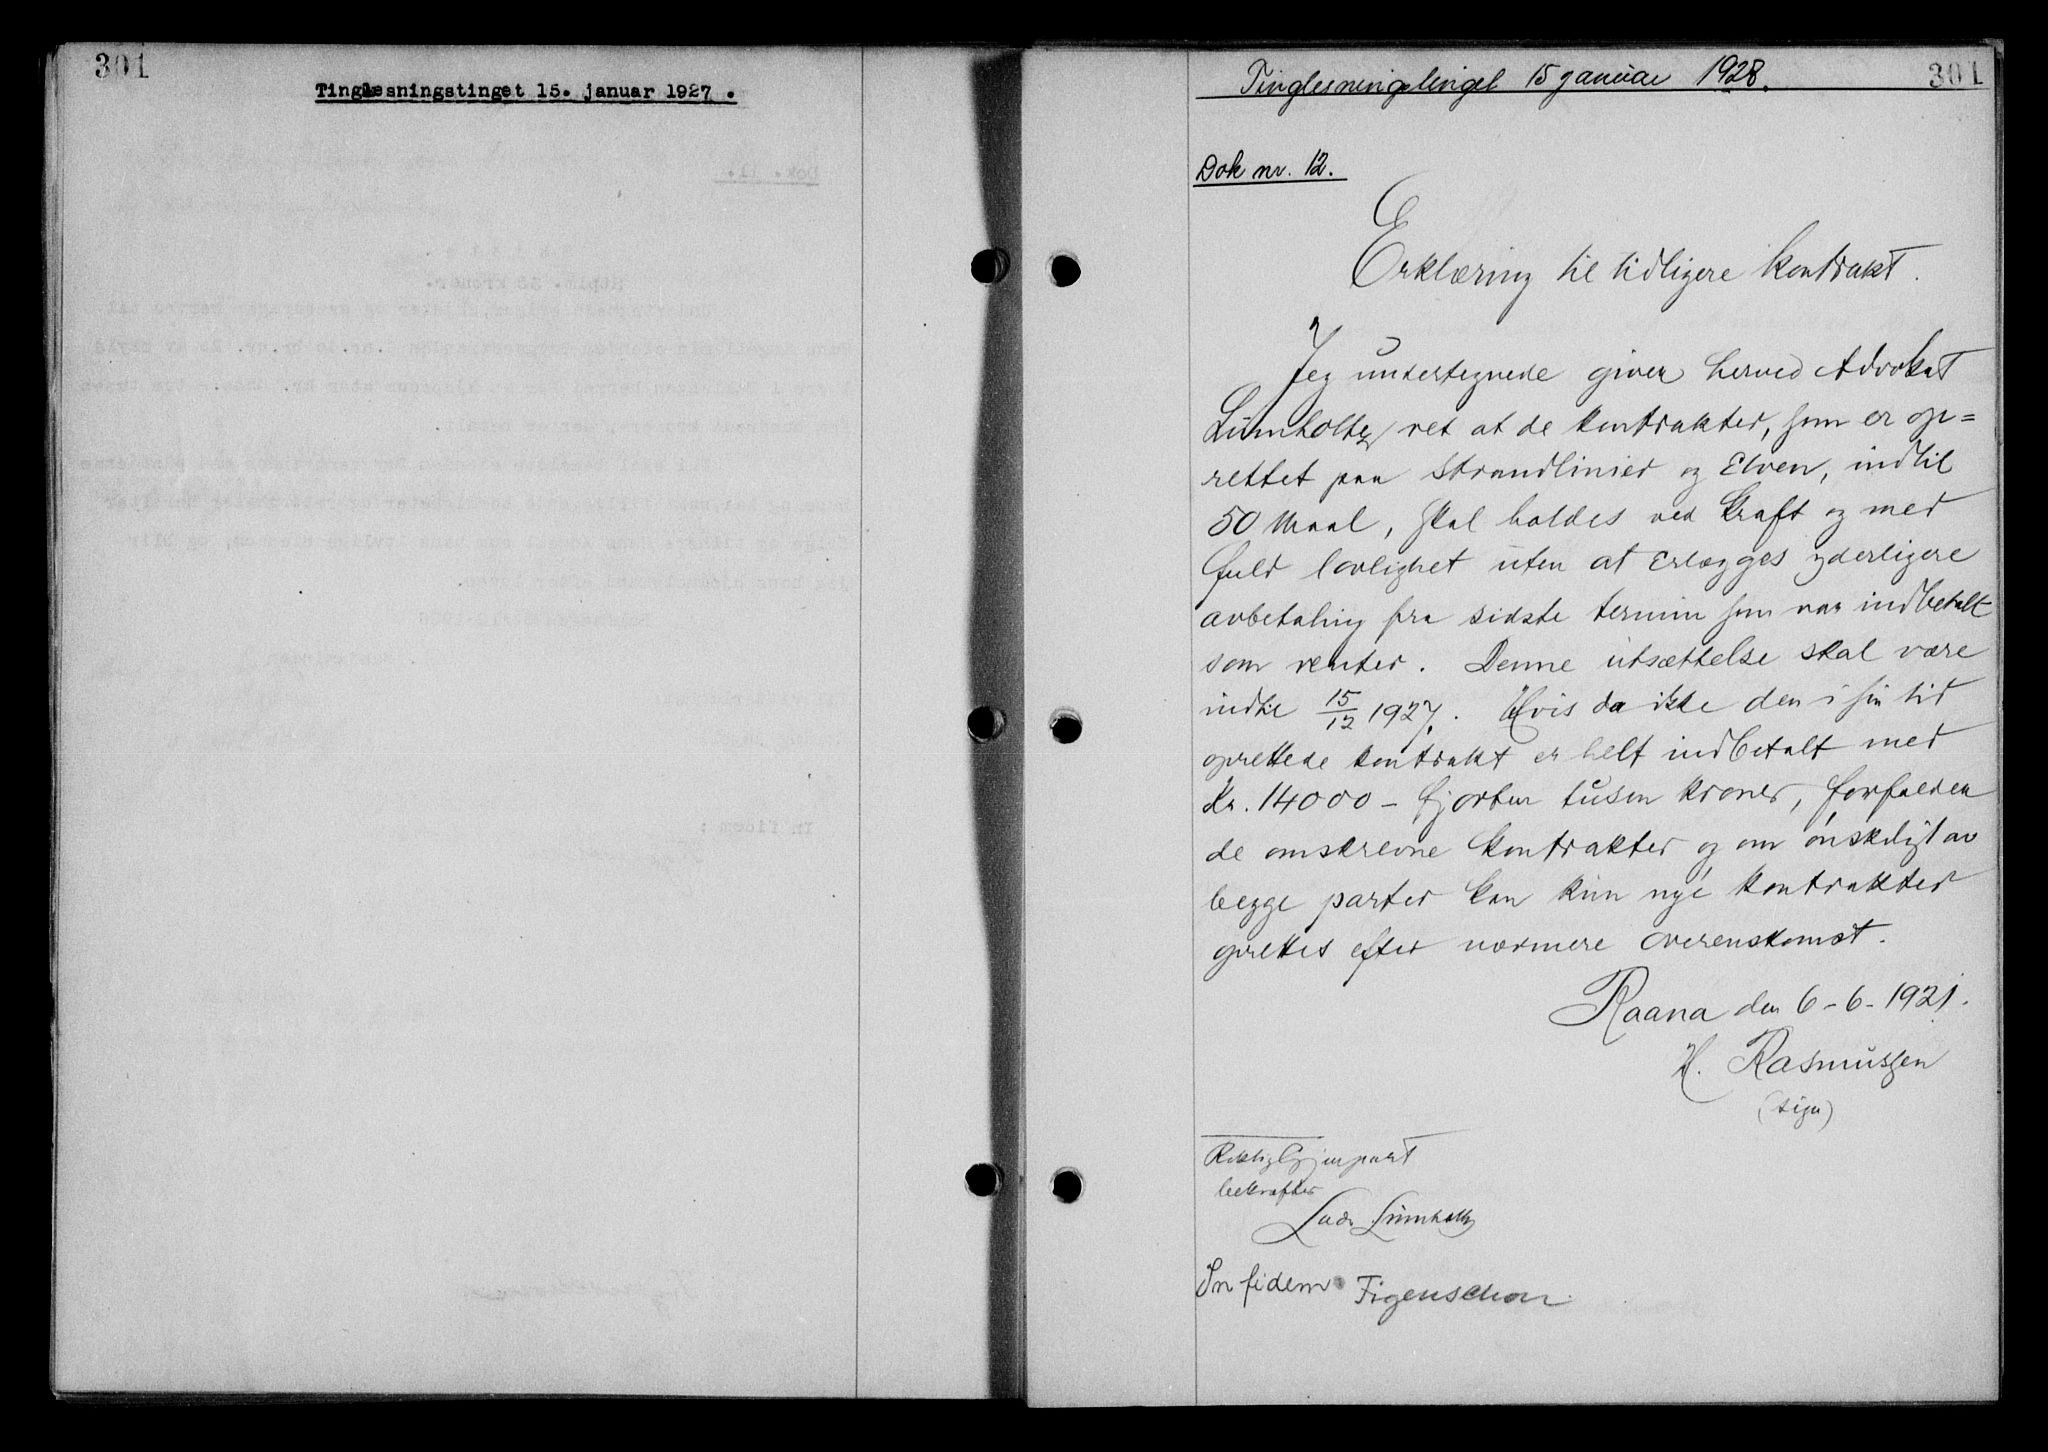 301
Tinglesningstinget 15. januar 1927.
Tinglesningstinget 15 januar 1928.
301
Dok nr. 12.
Erklæring til tidligere kontrakt.
Jeg undertegnede giver herved Advokat
Lumholtz ret at de kontrakter, som er op=
rettet paa Strandlinier og Elven, indtil
50 Maal, skal holdes ved kraft og med
fuld lovlighet uten at erlægges yderligere
avbetaling fra sidste termin som var indbetalt
som renter. Denne utsættelse skal være
indtil 15/12 1927. Hvis da ikke den i sin tid
oprettede kontrakt er helt indbetalt med
Kr. 14000 – fjorten tusen kroner, forfalder
de omskrevne kontrakter og om ønskeligt av
begge parter kan kun nye kontrakter
oprettes efter nærmere overenskomst.
Raana den 6-6-1921.
H. Rasmussen
(sign)
Riktig Gjenpart
bekræftes
Ludv. Lumholtz
In fidem Figenschou.